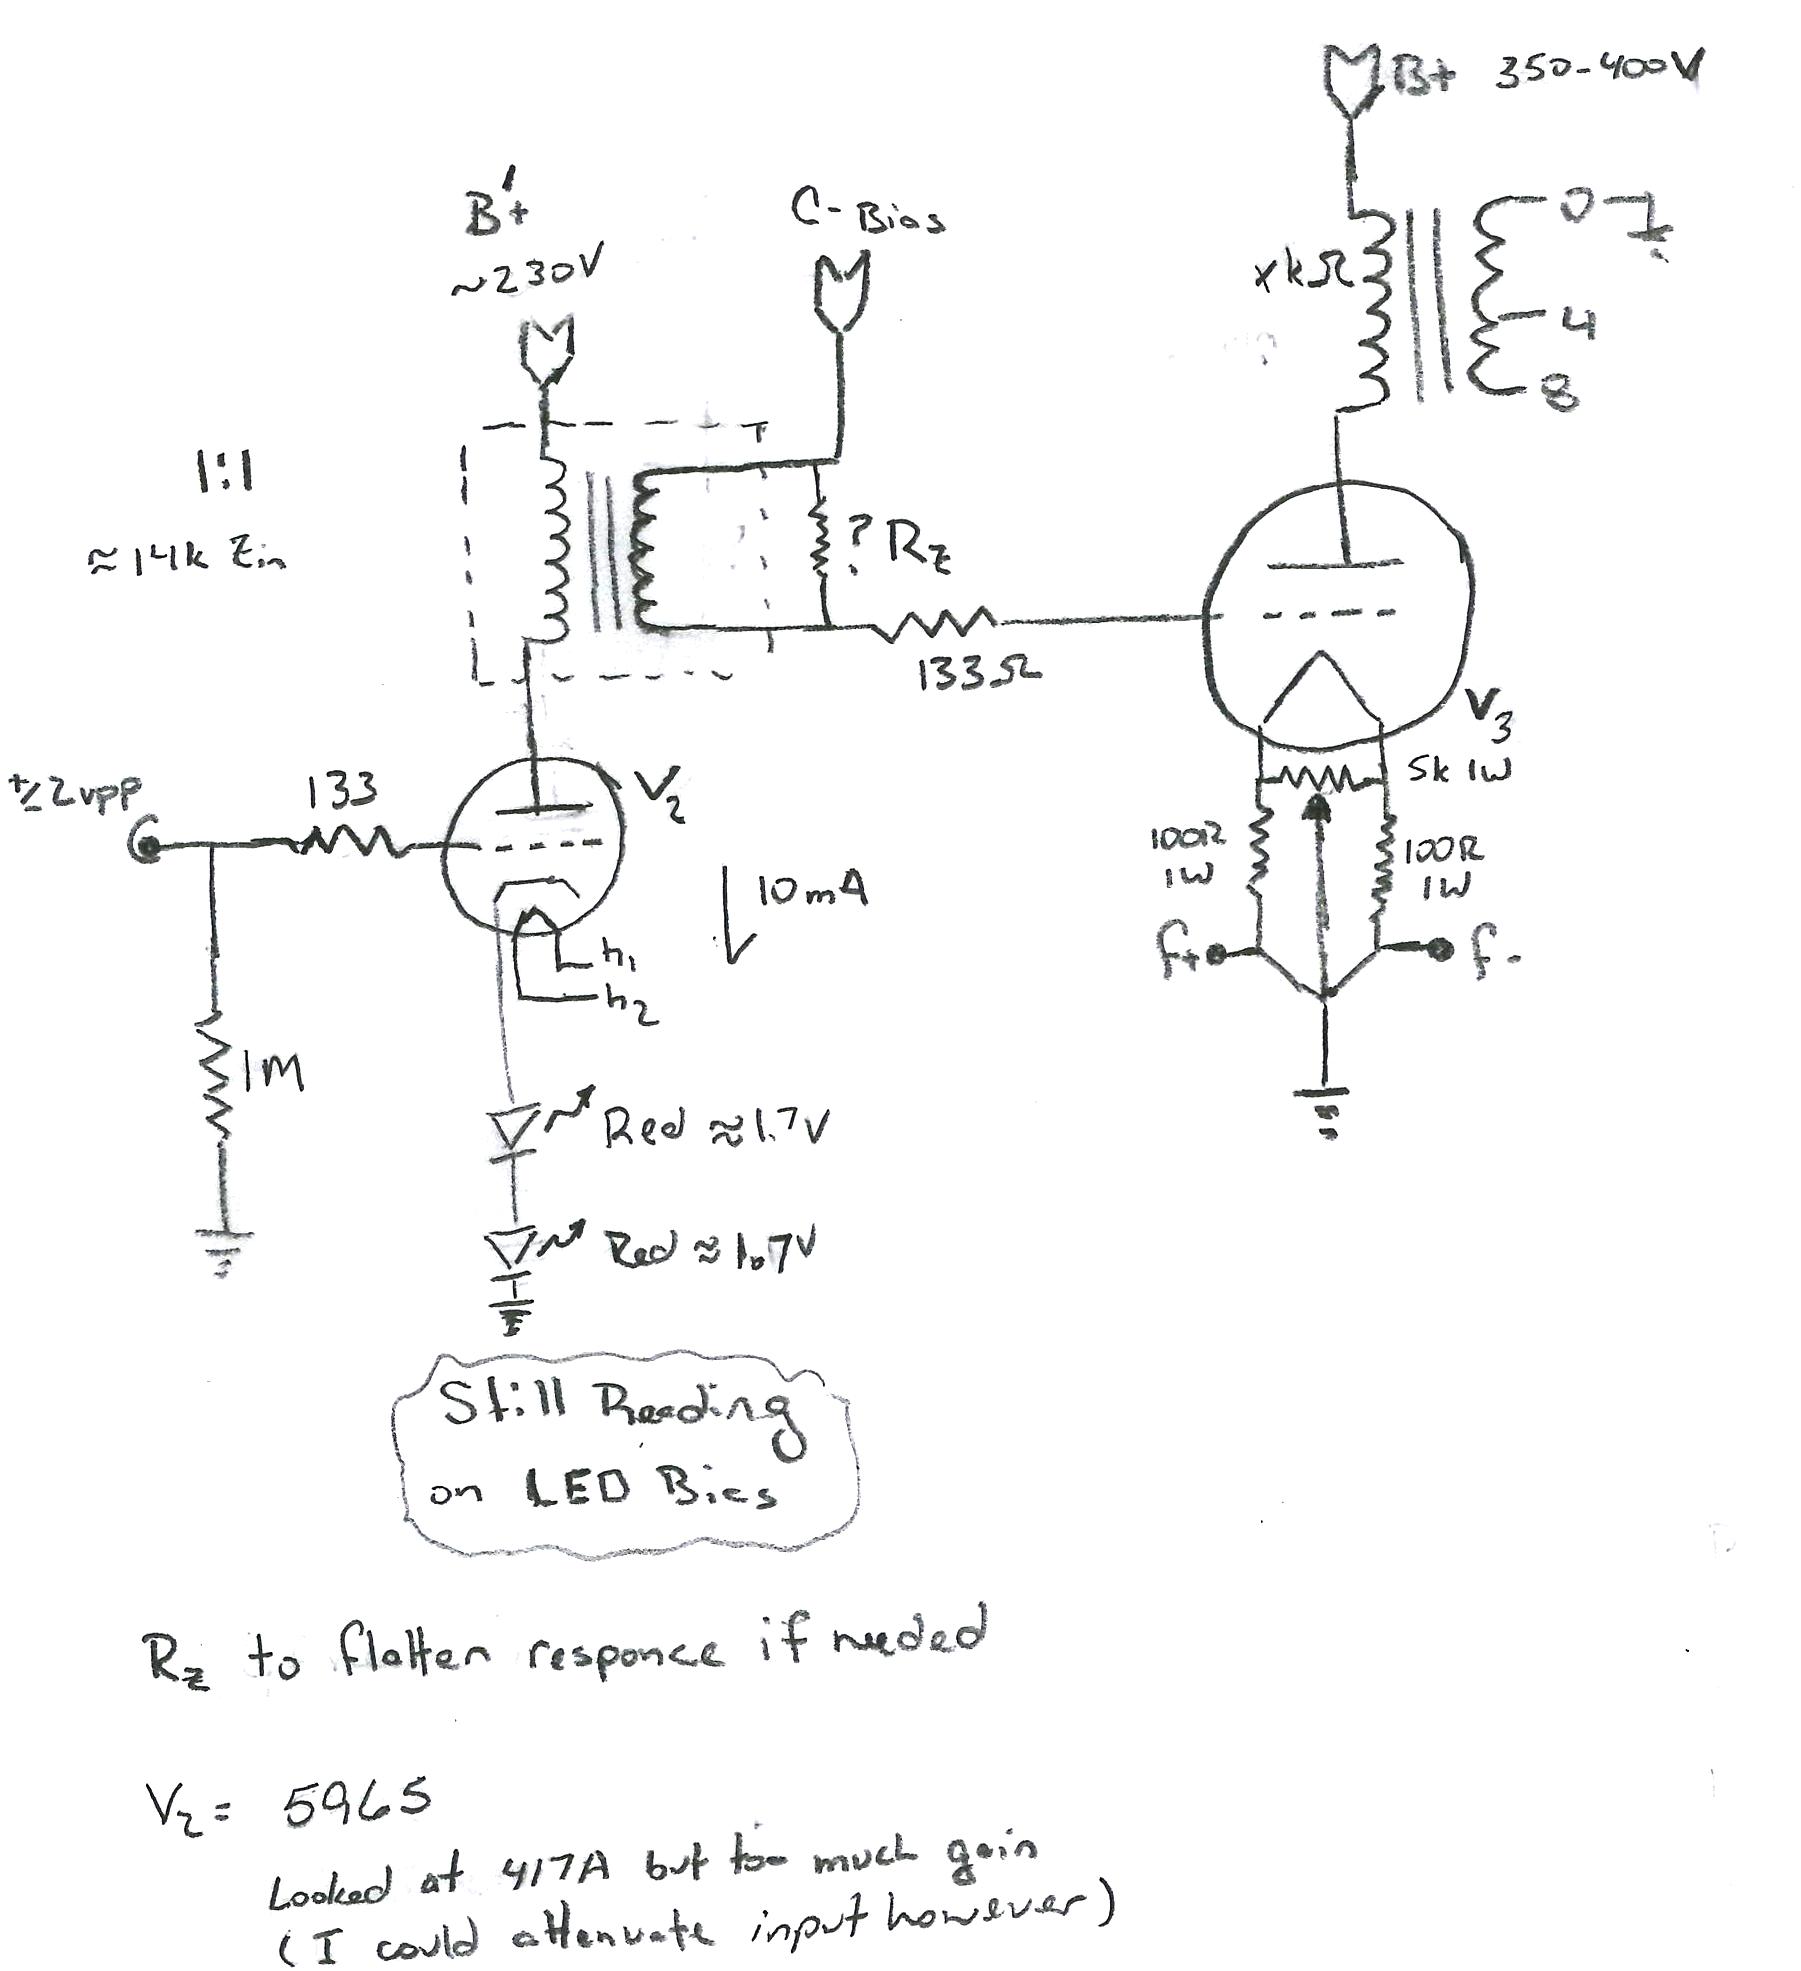 B+ 350-400V
B'+
~230V
C- Bias
xkΩ
0
4
8
1:1
≈ 14k Zin
? Rz
133Ω
V3
5k 1W
100Ω
1W
100Ω
1W
f+
f-
±2vpp
133
V2
10mA
h1
h2
1M
Red ≈1.7V
Red ≈1.7V
Still Reading
on LED Bias
Rz to flatten responce if needed
V2 = 5965
Looked at 417A but too much gain
(I could attenuate input however)